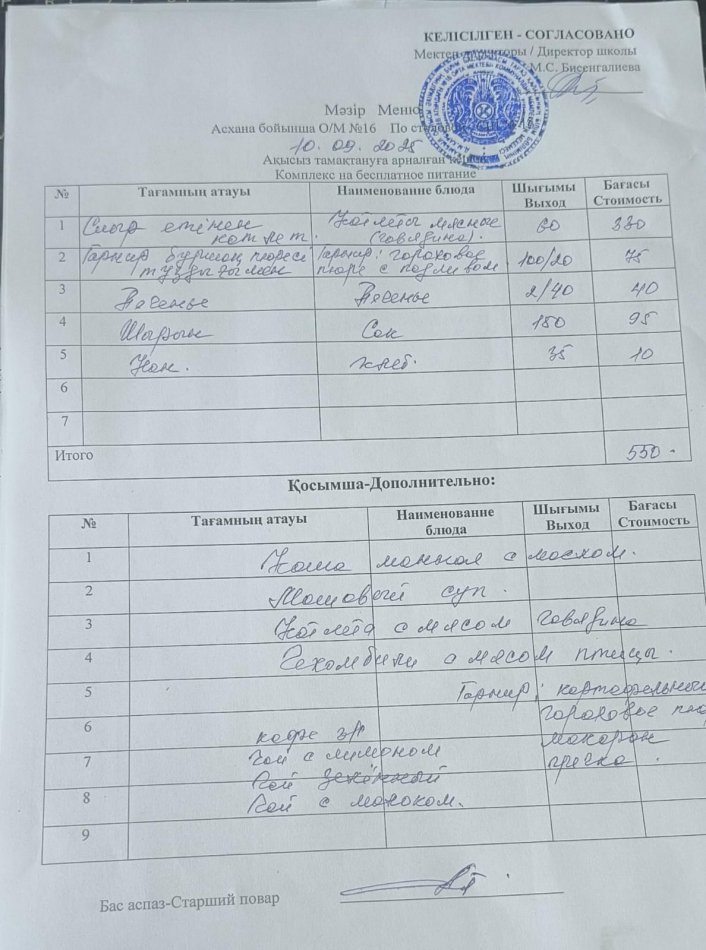 КЕЛІСІЛГЕН - СОГЛАСОВАНО
Мектеп директоры / Директор школы
М.С. Бисенгалиева
Мәзір Меню
Асхана бойынша О/М №16 По столовой
10.09.2025
Ақысыз тамақтануға арналған
Комплекс на бесплатное питание
№ Тағамның атауы Наименование блюда Шығымы Выход Бағасы Стоимость
1 Сиыр етінен котлет. Котлеты мясные (говядина). 60 330
2 Гарнир бұршақ пюресі тұздығымен Гарнир: гороховое пюре с подливом 100/20 75
3 Печенье Печенье 2/40 40
4 Шырын Сок 180 95
5 Нан. хлеб. 35 10
6
7
Итого 550
Қосымша-Дополнительно:
№ Тағамның атауы Наименование блюда Шығымы Выход Бағасы Стоимость
1 Каша манная с маслом.
2 Машовый суп.
3 Котлета с мясом говядина
4 с мясом птицы.
5 Гарнир:
6 кофе гороховое
7 Чай с лимоном макарон
Чай зелённый гречка.
8 Чай с молоком.
9
Бас аспаз-Старший повар